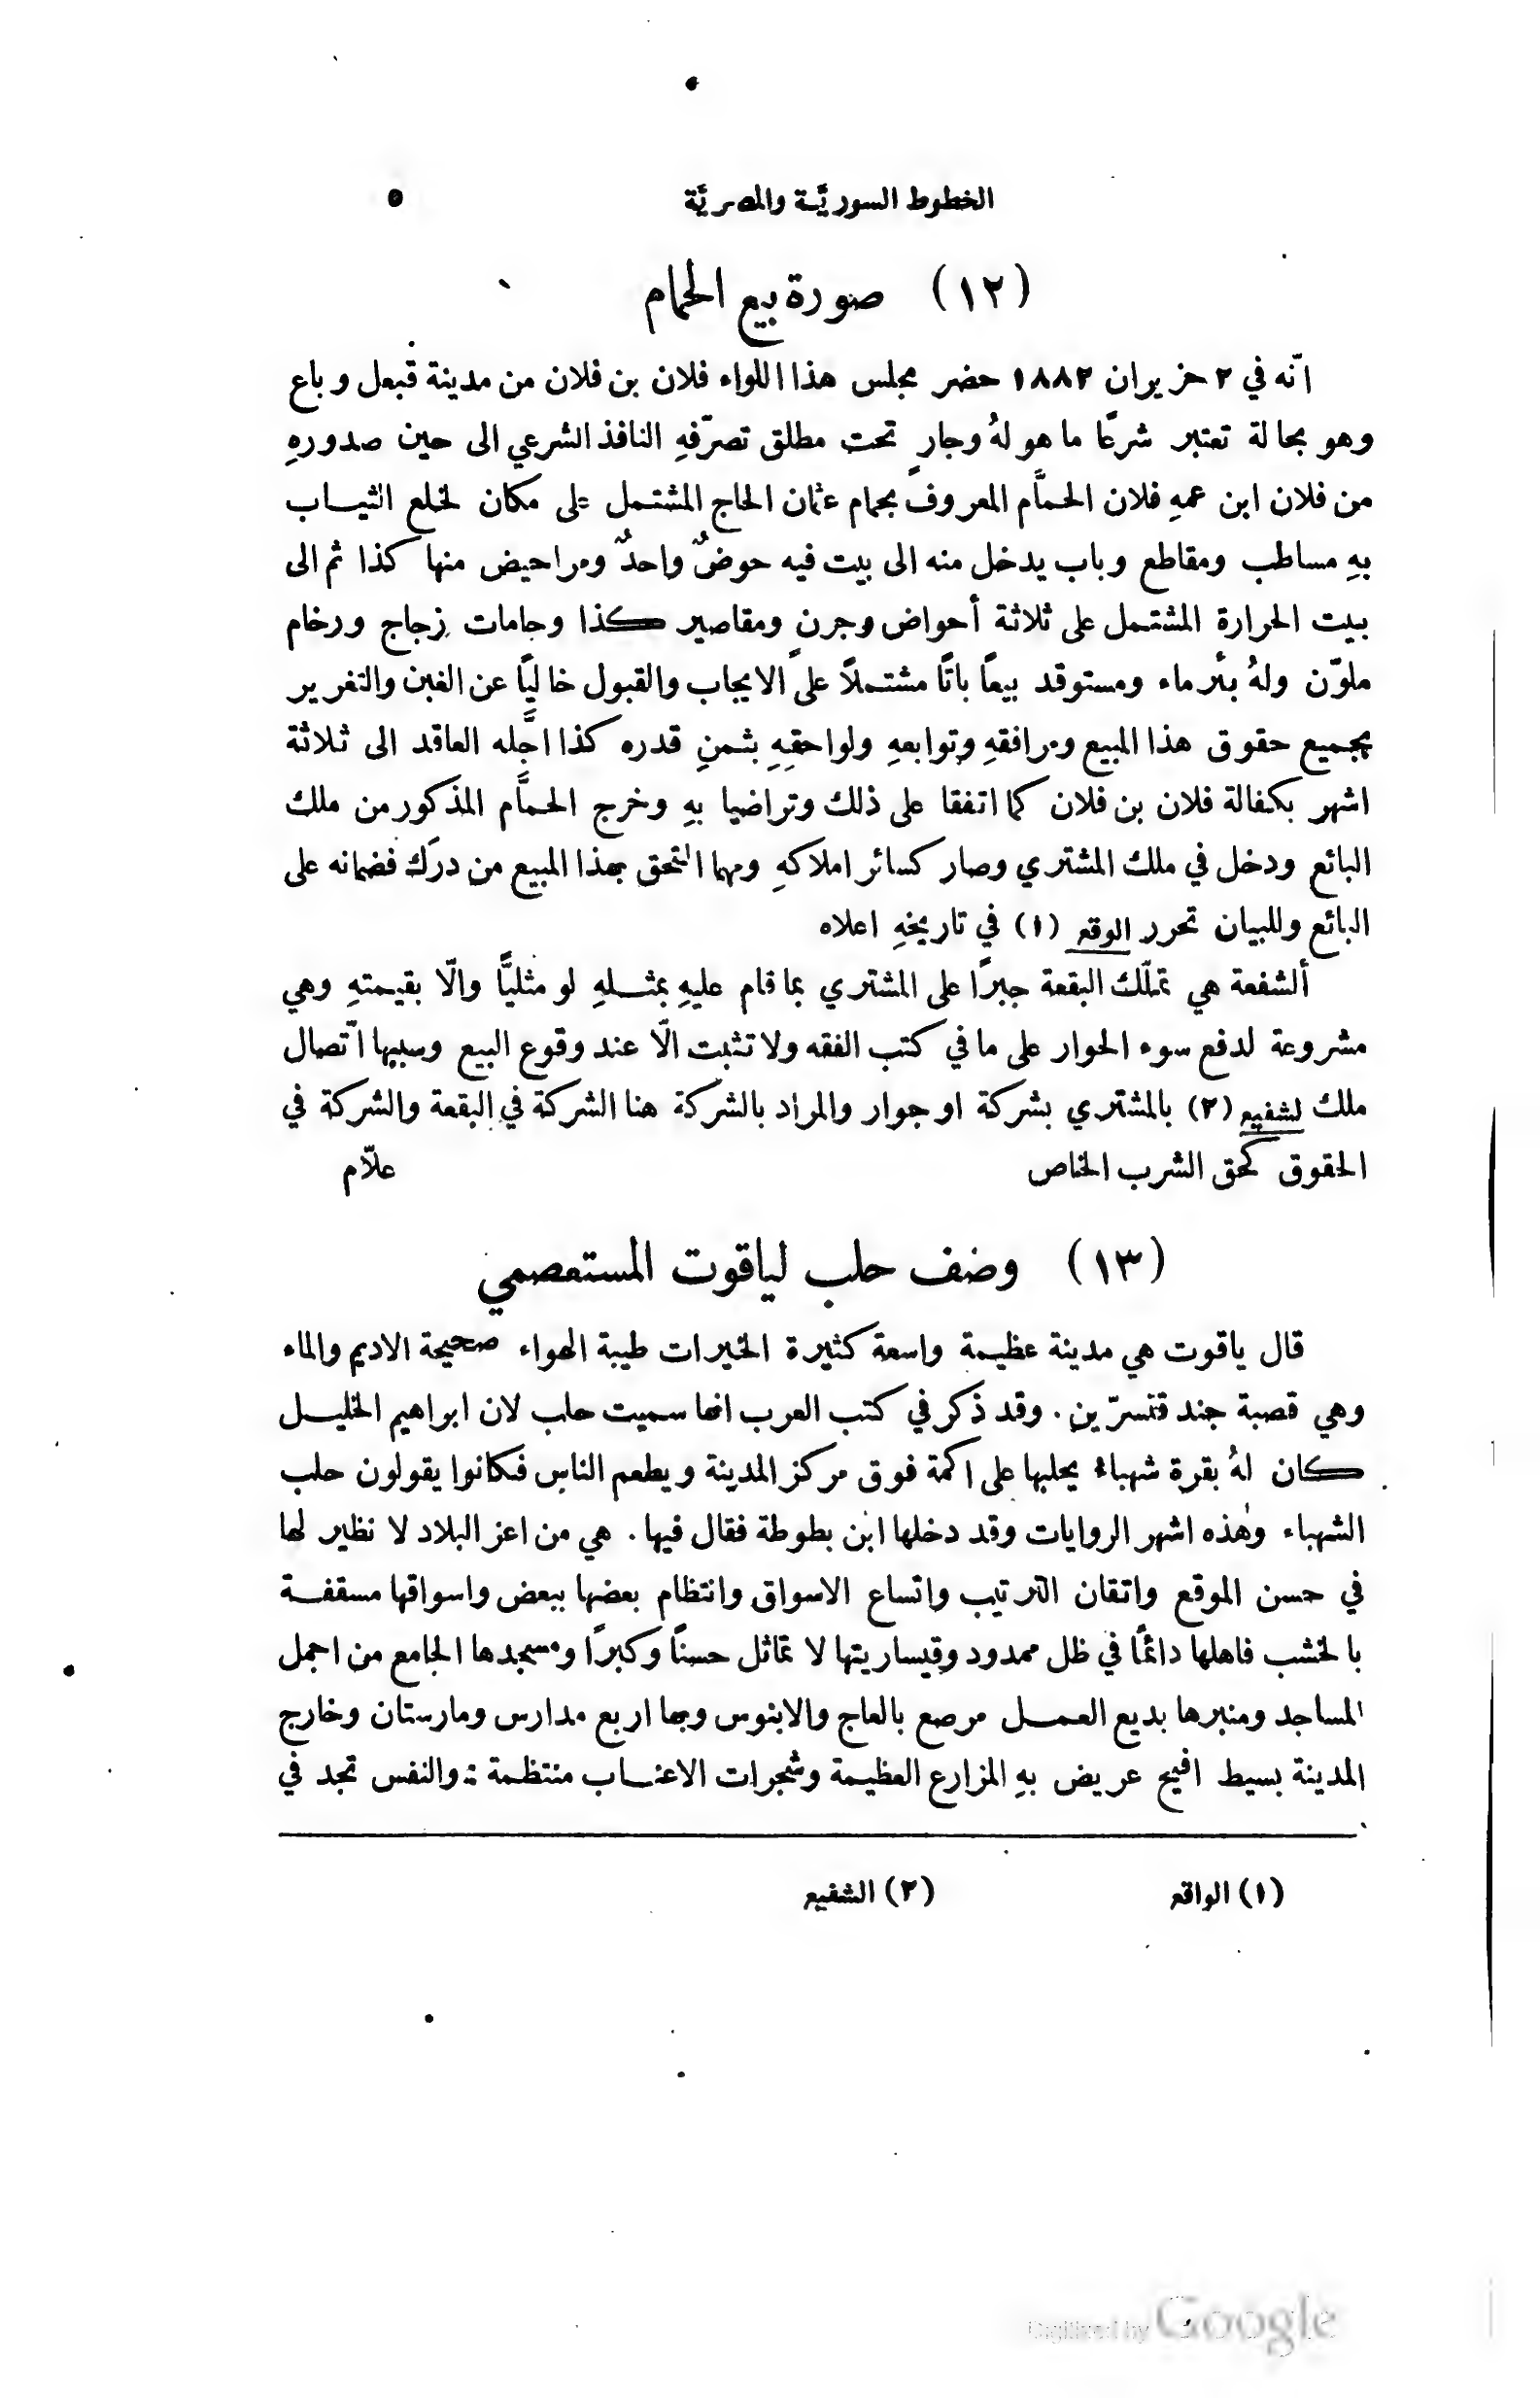 الخطوط السوريَّة والمصريَّة ٥
(١٢) صورة بيع الحمام
انّه في ٢ حزيران ١٨٨٢ حضر مجلس هذا اللواء فلان بن فلان من مدينة قبعل وباع
وهو بحالة تعتبر شرعًا ما هو لهُ وجارٍ تحت مطلق تصرّفهِ النافذ الشرعي الى حين صدورهِ
من فلان ابن عمهِ فلان الحمَّام المعروف بحمام عثمان الحاج المشتمل على مكان لخلع الثياب
بهِ مساطب ومقاطع وباب يدخل منه الى بيت فيه حوضٌ واحدٌ ومراحيض منها كذا ثم الى
بيت الحرارة المشتمل على ثلاثة أحواض وجرنٍ ومقاصير كذا وجامات زجاج ورخام
ملوّن ولهُ بئر ماء ومستوقد بيعًا باتًّا مشتملاً على الايجاب والقبول خاليًا عن الغبن والتغرير
بجميع حقوق هذا المبيع ومرافقهِ وتوابعهِ ولواحقهِ بثمنٍ قدره كذا اجَّله العاقد الى ثلاثة
اشهر بكفالة فلان بن فلان كما اتفقا على ذلك وتراضيا بهِ وخرج الحمَّام المذكور من ملك
البائع ودخل في ملك المشتري وصار كسائر املاكهِ ومهما التحق بهذا المبيع من درَك فضمانه على
البائع وللبيان تحرر الوقع (١) في تاريخهِ اعلاه
ألشفعة هي تملّك البقعة جبرًا على المشتري بما قام عليهِ بمثلهِ لو مثليًّا والّا بقيمتهِ وهي
مشروعة لدفع سوء الحوار على ما في كتب الفقه ولا تثبت الّا عند وقوع البيع وسببها اتّصال
ملك لشفيع (٢) بالمشتري بشركة او جوار والمراد بالشركة هنا الشركة في البقعة والشركة في
الحقوق كحق الشرب الخاص علّام
(١٣) وضف حلب لياقوت المستعصمي
قال ياقوت هي مدينة عظيمة واسعة كثيرة الخيرات طيبة الهواء صحيحة الاديم والماء
وهي قصبة جند قنسرّين. وقد ذكر في كتب العرب انها سميت حلب لان ابراهيم الخليل
كان لهُ بقرة شهباء يحلبها على اكمة فوق مركز المدينة ويطعم الناس فكانوا يقولون حلب
الشهباء وهٰذه اشهر الروايات وقد دخلها ابن بطوطة فقال فيها. هي من اعز البلاد لا نظير لها
في حسن الموقع واتقان الترتيب واتساع الاسواق وانتظام بعضها ببعض واسواقها مسقفة
بالخشب فاهلها دائمًا في ظل ممدود وقيساريتها لا تماثل حسنًا وكبرًا ومسجدها الجامع من اجمل
المساجد ومنبرها بديع العمل مرصع بالعاج والابنوس وبها اربع مدارس ومارستان وخارج
المدينة بسيط افيح عريض بهِ المزارع العظيمة وشجرات الاعناب منتظمة بهِ والنفس تجد في
(١) الواقع (٢) الشفيع
Digitized by Google